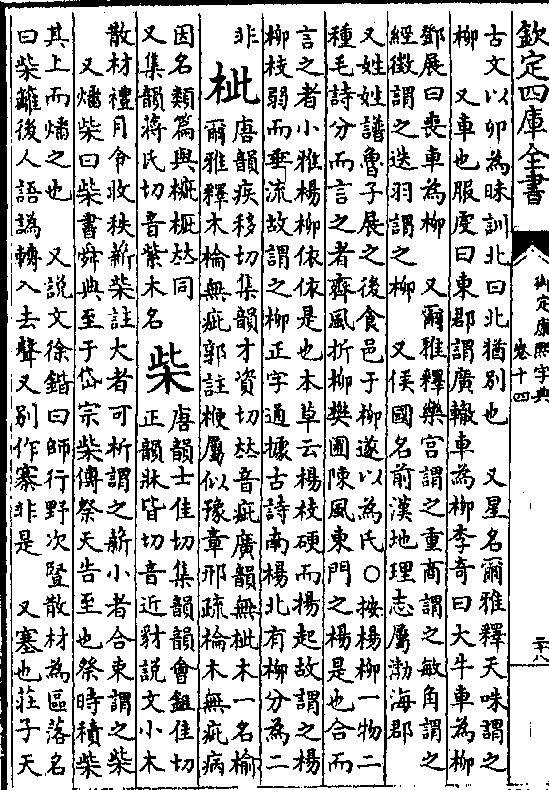 欽定四庫全書
御定康熙字典
卷十四
二十八
古文以卯為昧訓北曰北猶別也　又星名爾雅釋天咮謂之
柳　又車也服虔曰東郡謂廣轍車為柳李奇曰大牛車為柳
鄧展曰喪車為柳　又爾雅釋樂宮謂之重商謂之敏角謂之
經徵謂之迭羽謂之柳　又侯國名前漢地理志屬渤海郡
又姓姓譜魯子展之後食邑于柳遂以為氏○按楊柳一物二
種毛詩分而言之者齊風折柳樊圃陳風東門之楊是也合而
言之者小雅楊柳依依是也本草云楊枝硬而揚起故謂之楊
柳枝弱而垂流故謂之柳正字通據古詩南楊北有柳分為二
非
枇
唐韻疾移切集韻才資切𠀤音疵廣韻無枇木一名榆
爾雅釋木棆無疵郭註楩屬似豫章邢疏棆木無疵病
因名類篇與榹榧𠀤同
又集韻蔣氏切音紫木名
柴
唐韻士佳切集韻韻會鉏佳切
正韻牀皆切音近豺說文小木
散材禮月令收秩薪柴註大者可析謂之薪小者合束謂之柴
又燔柴曰柴書舜典至于岱宗柴傳祭天告至也祭時積柴
其上而燔之也　又說文徐鍇曰師行野次豎散材為區落名
曰柴籬後人語譌轉入去聲又別作寨非是　又塞也莊子天